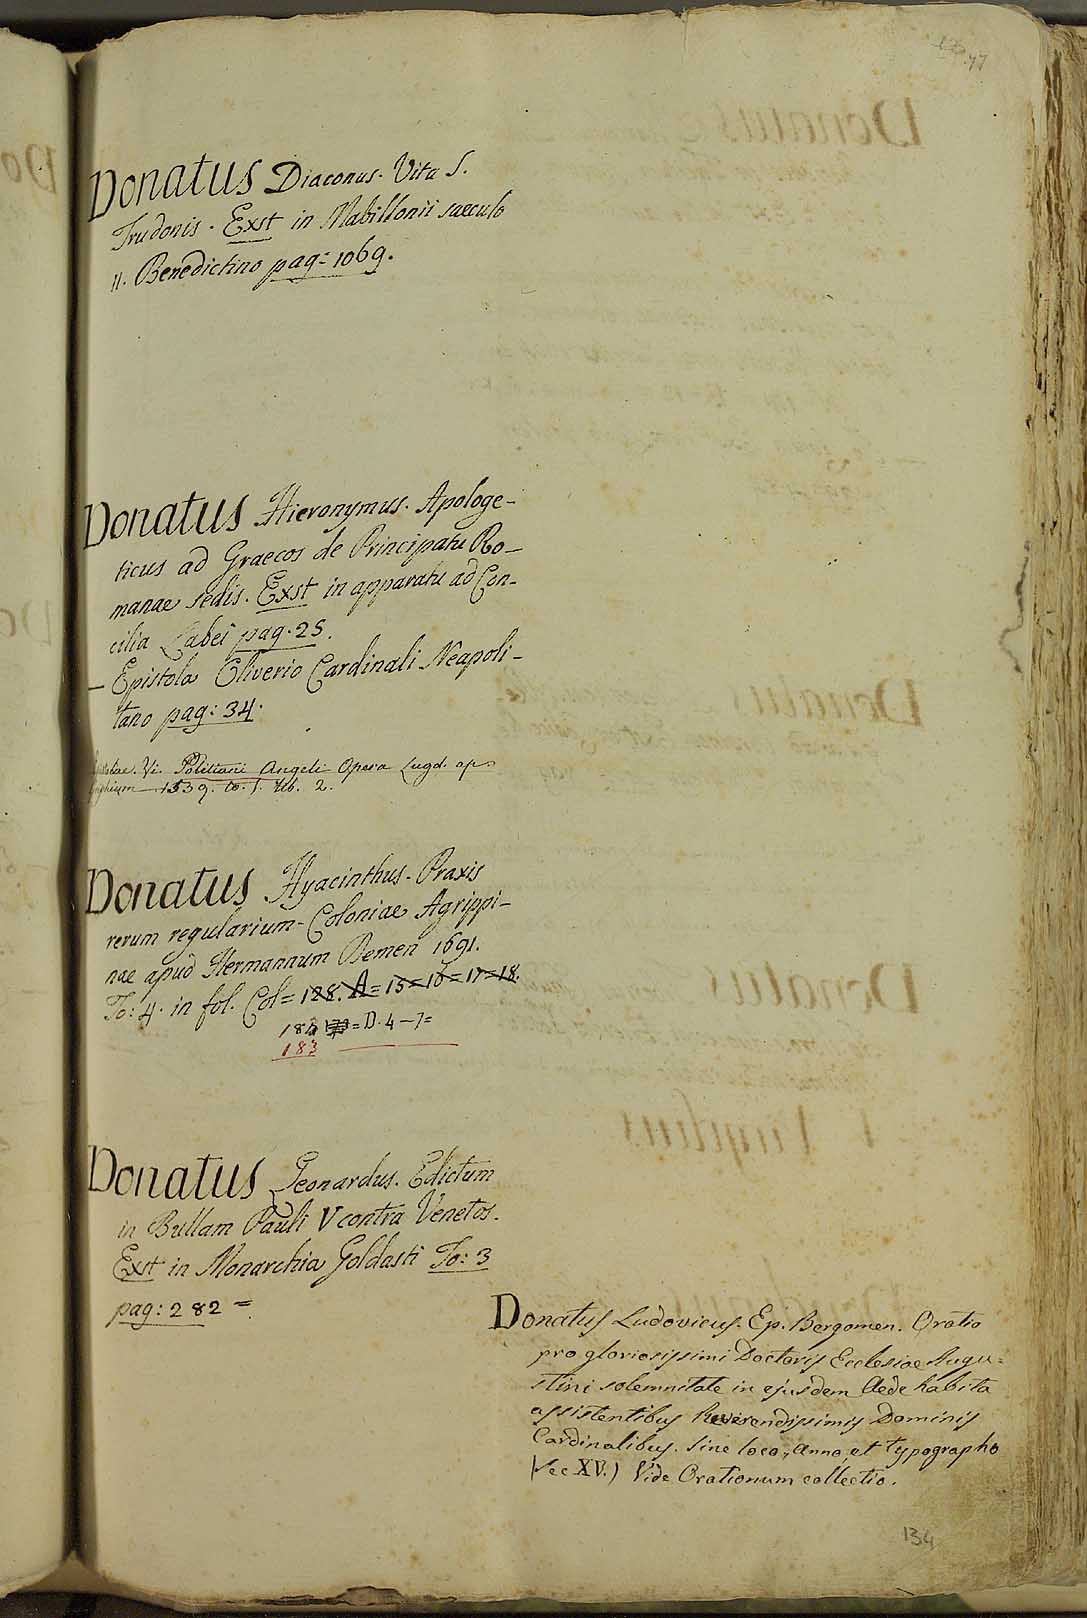 77
Donatus Diaconus. Vita S.
Trudonis. Exst in Mabillonii saeculo
II. Benedictino pag: 1069.
Donatus Hieronymus. Apologe-
ticus ad Graecos de Principatu Ro-
manae sedis. Exst in apparatu ad Con-
cilia Labei pag. 25.
— Epistola Oliverio Cardinali Neapoli-
tano pag: 34.
Epistolae. Vi. Politiani Angeli Opera Lugd. ap.
1539. to. 1. lib. 2.
Donatus Hyacinthus. Praxis
rerum regularium. Coloniae Agrippi-
nae apud Hermannum Demen 1691.
To: 4. in fol. Col= 128. A= 15=16=17=18.
= D. 4 — 7=
183
Donatus Leonardus. Edictum
in Bullam Pauli V contra Venetos.
Exst in Monarchia Goldasti To: 3
pag: 282 =
Donatus Ludovicus. Ep. Bergomen. Oratio
pro gloriosissimi Doctoris Ecclesiae Augu=
stini solemnitate in ejusdem Aede habita
assistentibus Reverendissimis Dominis
Cardinalibus. Sine loco, anno, et typographo
(Sec XV.) Vide Orationum collectio.
134